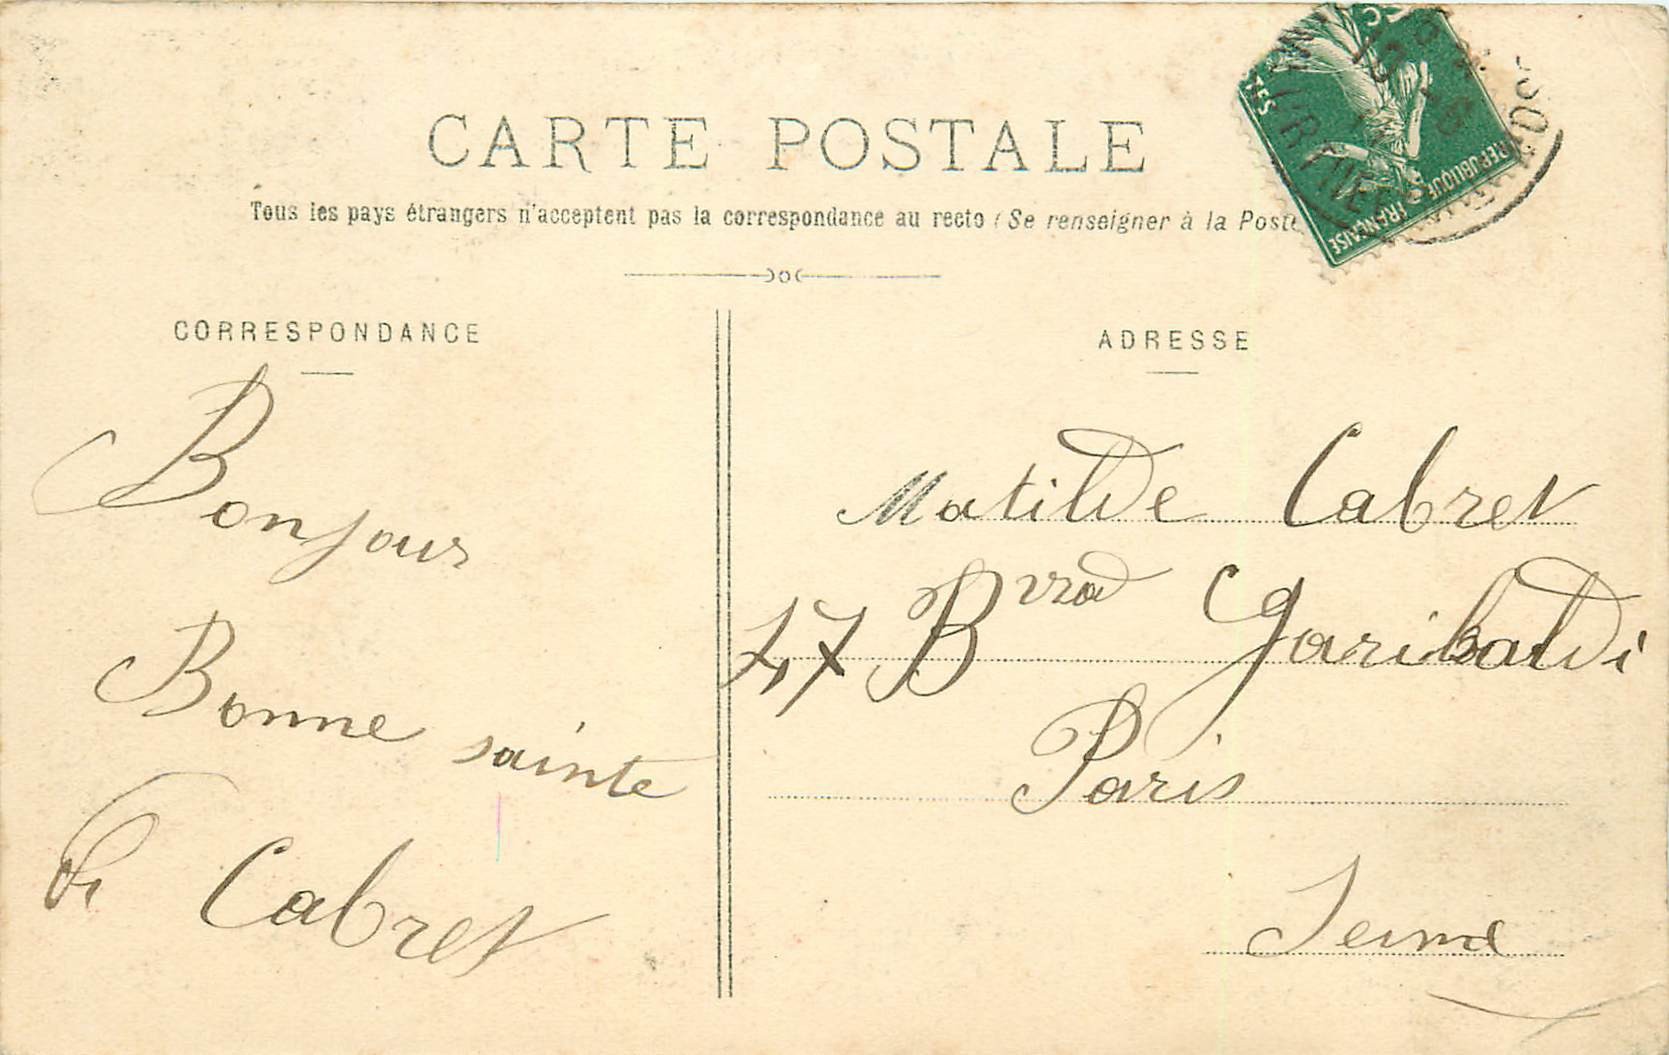 CARTE POSTALE
Tous les pays étrangers n'acceptent pas la correspondance au recto (Se renseigner à la Poste
CORRESPONDANCE
Bonjour
Bonne sainte
Cabret
ADRESSE
Matilde Cabret
47 Bvrd Garibaldi
Paris
Seine
REPUBLIQUE FRANÇAISE